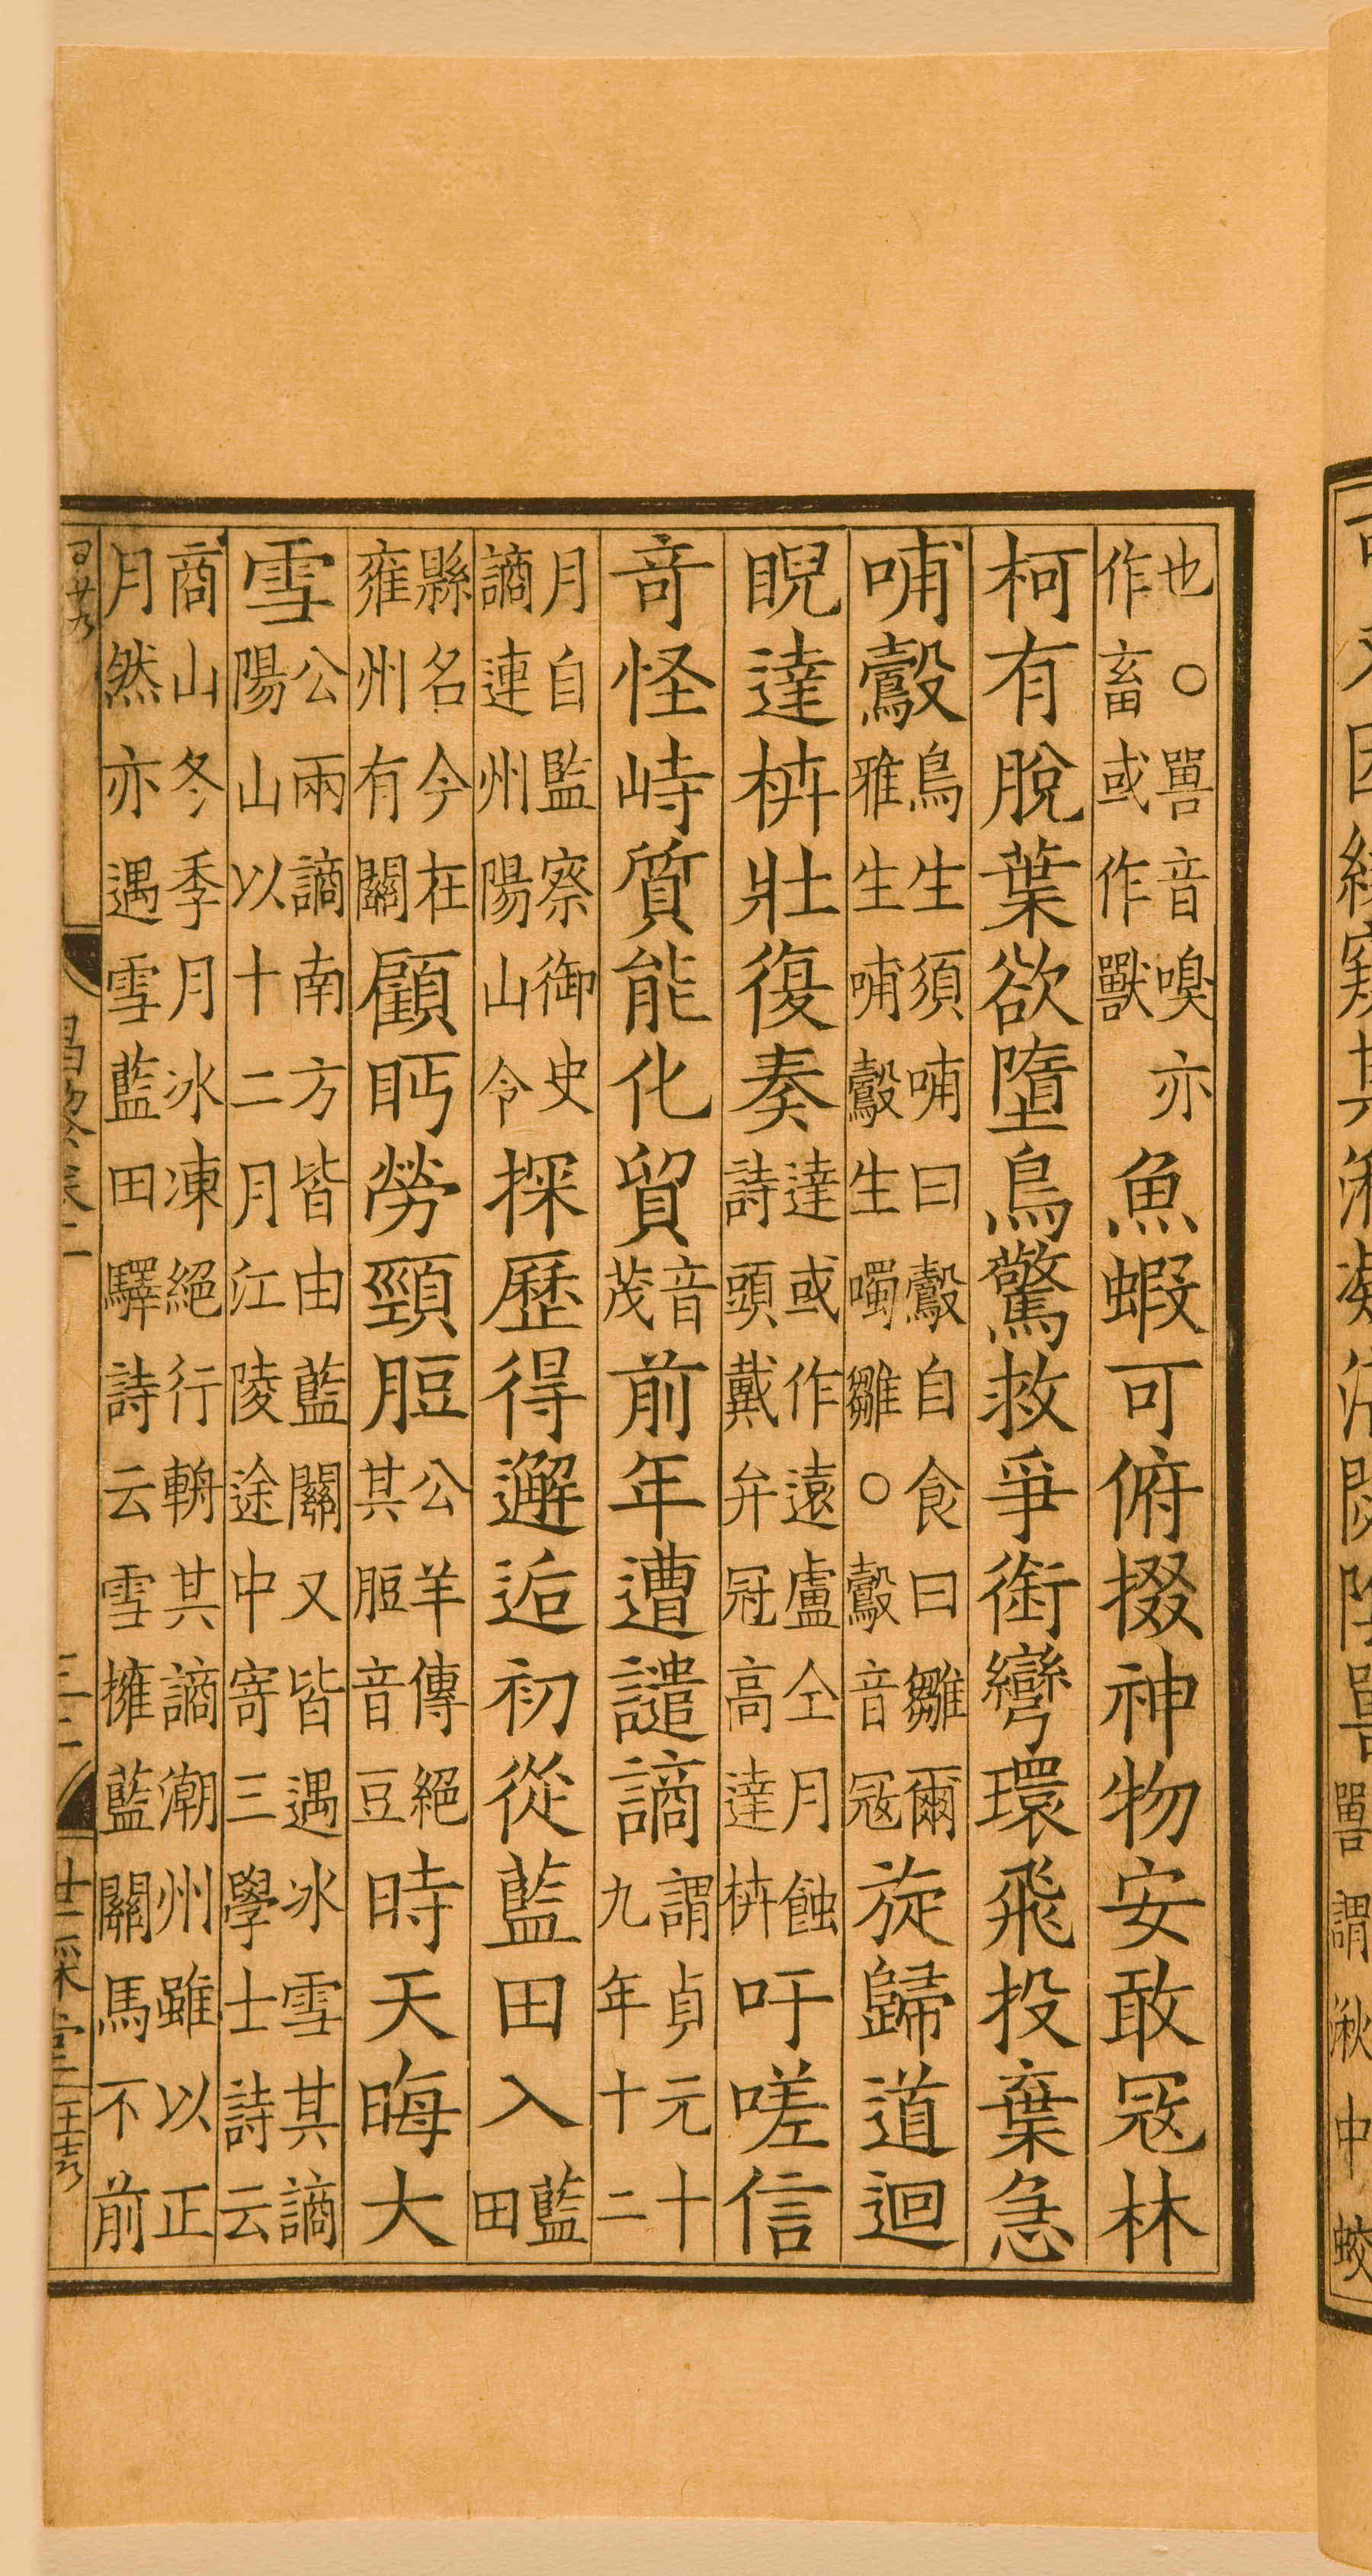 也○嘼音嗅亦作畜或作獸魚蝦可俯掇神物安敢冦林
柯有脫葉欲墮鳥驚救爭銜彎環飛投棄急
哺鷇鳥生須哺曰鷇自食曰雛爾雅生哺鷇生噣雛○鷇音冦旋歸道迴
睨達枿壯復奏達或作遠盧仝月蝕詩頭戴弁冠高達枿吁嗟信
竒怪峙質能化貿音茂前年遭譴謫謂貞元十九年十二
月自監察御史謫連州陽山令探歷得邂逅初從藍田入藍田
縣名今在雍州有關顧眄勞頸脰公羊傳絕其脰音豆時天晦大
雪公兩謫南方皆由藍關又皆遇冰雪其謫陽山以十二月江陵途中寄三學士詩云
商山冬季月冰凍絕行輈其謫潮州雖以正月然亦遇雪藍田驛詩云雪擁藍關馬不前
昌黎卷二
三二
世綵堂